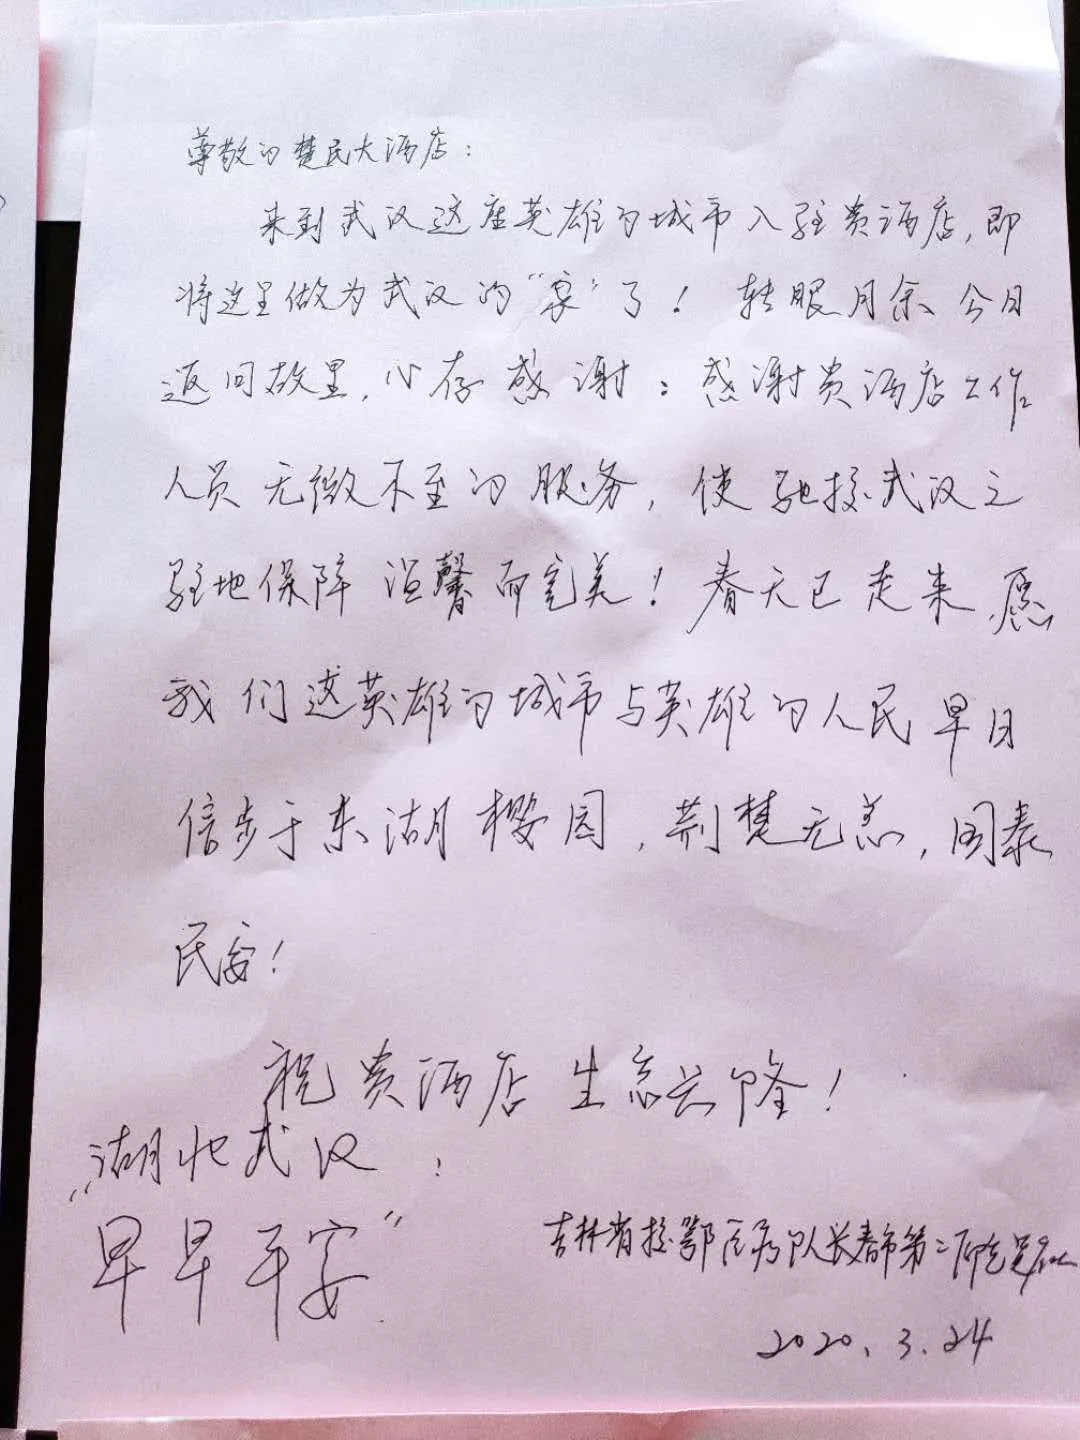 尊敬的楚民大酒店：
来到武汉这座英雄的城市入驻贵酒店，即
将这里做为武汉的“家”了！转眼月余今日
返回故里，心存感谢：感谢贵酒店工作
人员无微不至的服务，使驰援武汉之
驻地保障温馨而完美！春天已走来，愿
我们这英雄的城市与英雄的人民早日
信步于东湖樱园，荆楚无恙，国泰
民安！
祝贵酒店生意兴隆！
“湖北武汉！
早早平安”
吉林省援鄂医疗队长春市第二
2020.3.24